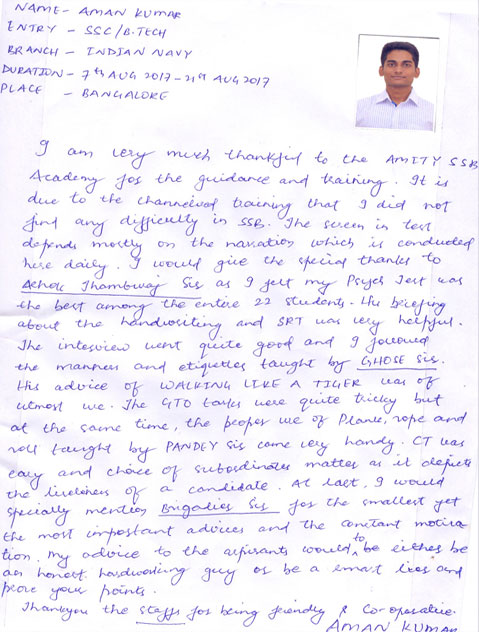 NAME - AMAN KUMAR
ENTRY - SSC/B.TECH
BRANCH - INDIAN NAVY
DURATION - 7th AUG 2017 - 21st AUG 2017
PLACE - BANGALORE
I am very much thankful to the AMITY SSB
Academy for the guidance and training. It is
due to the channelised training that I did not
find any difficulty in SSB. The screen in test
depends mostly on the narration which is conducted
here daily. I would give the special thanks to
Ashok Thambuwaj Sir as I felt my Psych Test was
the best among the entire 22 students. His briefing
about the handwriting and SRT was very helpful.
The interview went quite good and I followed
the manners and etiquettes taught by GHOSE Sir.
His advice of WALKING LIKE A TIGER was of
utmost use. The GTO tasks were quite tricky but
at the same time, the proper use of Plank, rope and
roll taught by PANDEY Sir came very handy. CT was
easy and choice of subordinates matter as it depicts
the liveliness of a candidate. At last, I would
specially mention Brigadier Sir for the smallest yet
the most important advices and the constant motiva-
tion. My advice to the aspirants would to be either be
an honest hardworking guy or be a smart liar and
prove your points.
Thankyou the staffs for being friendly & Co-operative.
AMAN KUMAR